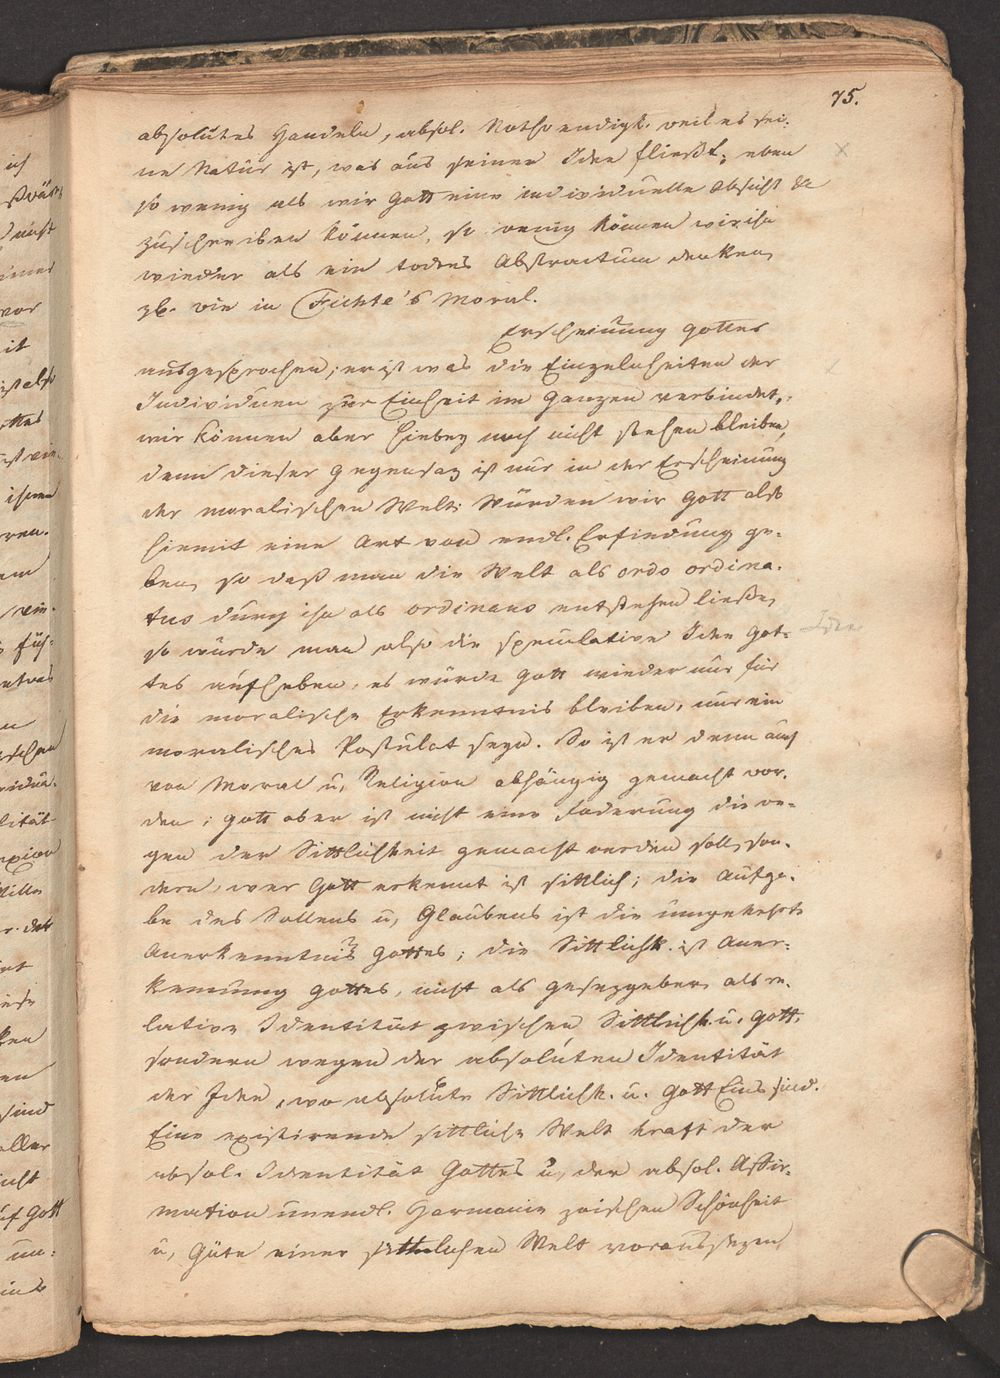 75.
absolutes Handeln, absol. Nothwendigk. weil es sei-
ne Natur ist, was aus seiner Idee fließt; eben
so wenig als wir Gott eine individuelle Absicht &c
zuschreiben können, so wenig können wir ihn
wieder als ein todtes Abstractum denken,
zb. wie in Fichte's Moral.
Erscheinung Gottes
ausgesprochen; er ist was die Einzelnheiten der
Individuen zur Einheit im Ganzen verbindet,
wir können aber hiebey noch nicht stehen bleiben,
denn dieser Gegensaz ist nur in der Erscheinung
der moralischen Welt. Würden wir Gott also
hiemit eine Art von endl. Erfindung ge-
ben, so daß man die Welt als ordo ordina-
tus durch ihn als ordinans entstehen ließe,
so würde man also die speculative Idee Got-
tes aufheben, es würde Gott wieder nur für
die moralische Erkenntnis bleiben, nur ein
moralisches Postulat seyn. So ist er denn auch
von Moral u. Religion abhängig gemacht wor-
den; Gott aber ist nicht eine Foderung die we-
gen der Sittlichkeit gemacht werden soll, son-
dern, wer Gott erkennt ist sittlich; die Aufga-
be des Sollens u. Glaubens ist die umgekehrte
Anerkenntnis Gottes; die Sittlichk. ist Aner-
kennung Gottes, nicht als Gesezgeber, als re-
lative Identität zwischen Sittlichk. u. Gott,
sondern wegen der absoluten Identität
der Idee, wo absolute Sittlichk. u. Gott Eins sind.
Eine existirende sittliche Welt kraft der
absol. Identität Gottes u. der absol. Affir-
mation unendl. Harmonie zwischen Schönheit
u. Güte einer sittlichen Welt voraussezen